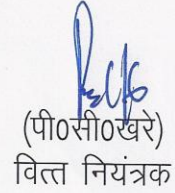 (पी0सी0खरे)
वित्त नियंत्रक